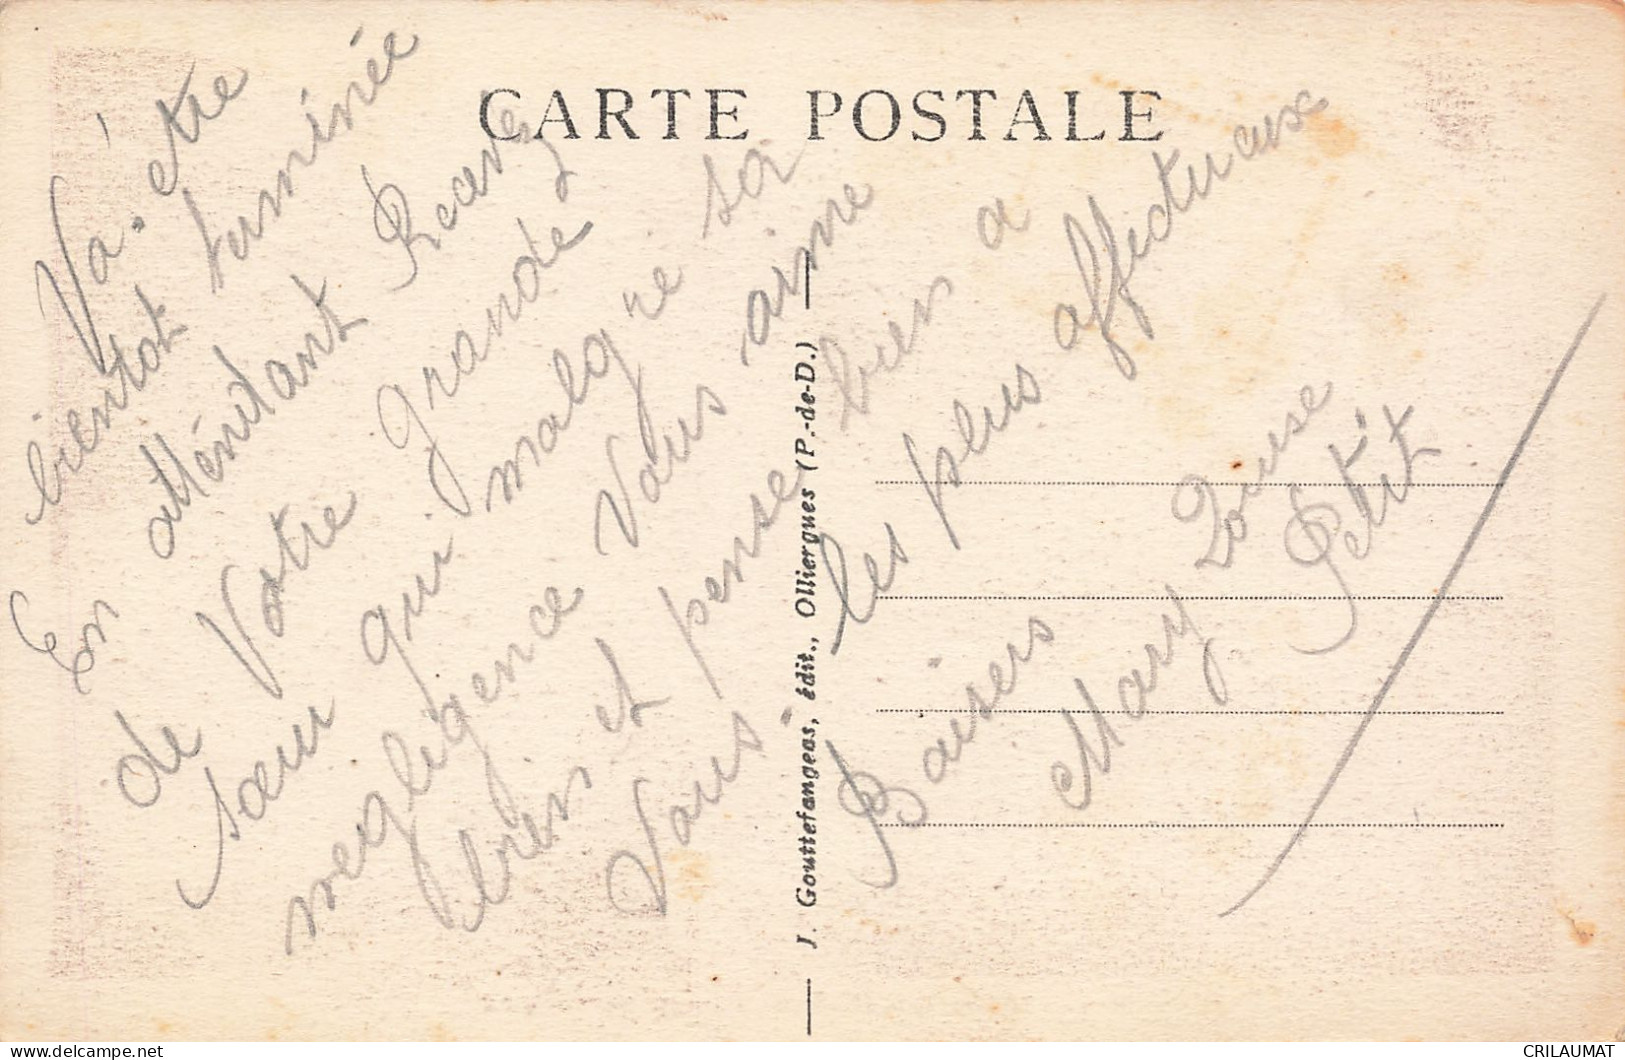 CARTE POSTALE
Va. être
bientot terminée
En atténdant Recevez
de Votre grande
sœur qui malgre sa
negligence Vous aime
bien et pense bien a
Vous
les plus affectueux
Baisers
Mary Louise
Petit
J. Gouttefangeas, édit., Olliergues (P.-de-D.)
CRILAUMAT